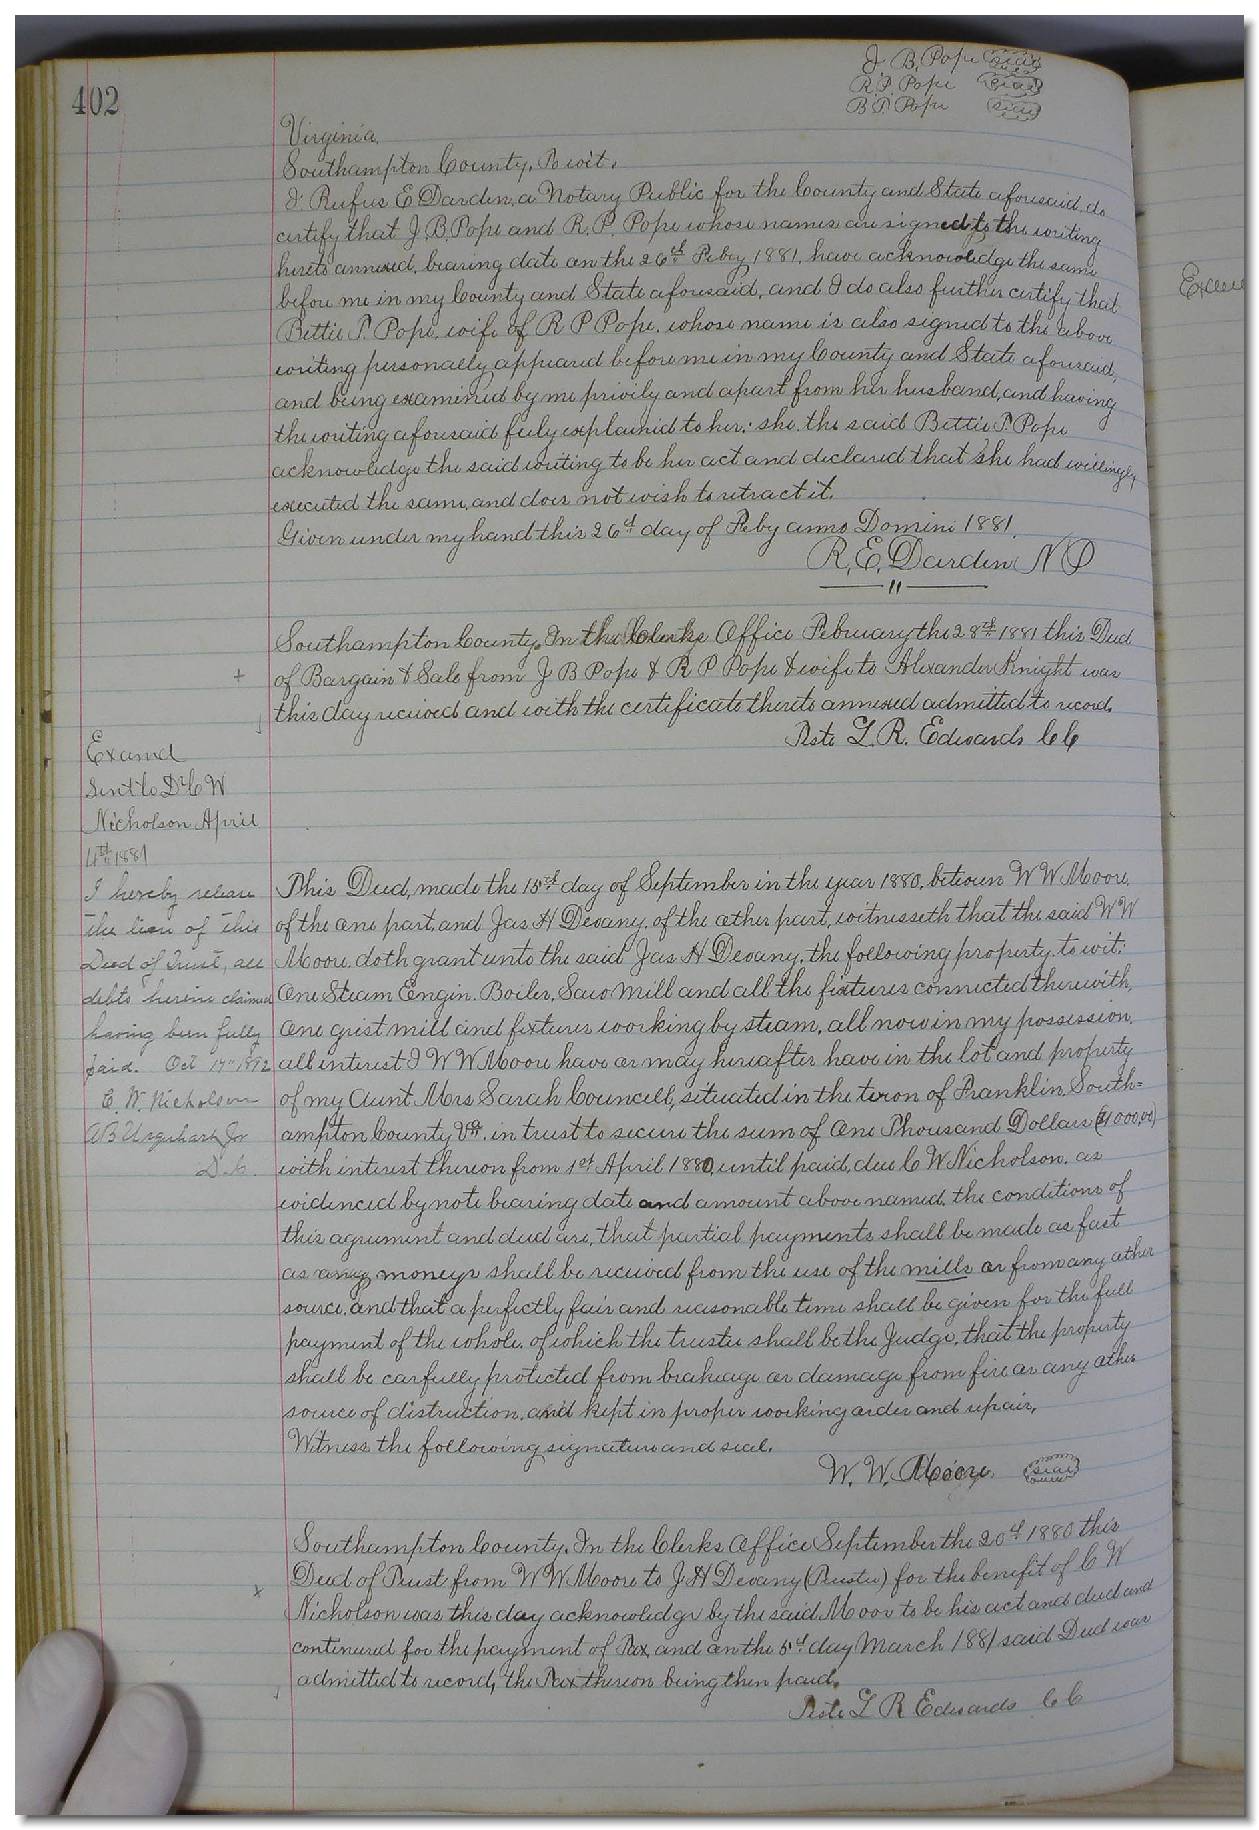 402
J. B. Pope (seal)
R. P. Pope (seal)
B. P. Pope (seal)
Virginia
Southampton County, To wit.
I Rufus E Darden, a Notary Public for the County and State aforesaid, do
certify that J. B. Pope and R. P. Pope whose names are signed to the writing
hereto annexed, bearing date on the 26th Feby 1881, have acknowledge the same
before me in my County and State aforesaid, and I do also further certify that
Bettie P. Pope, wife of R P Pope, whose name is also signed to the above
writing personally appeared before me in my County and State aforesaid,
and being examined by me privily and apart from her husband, and having
the writing aforesaid fully explained to her; she the said Bettie P. Pope
acknowledge the said writing to be her act and declared that she had willingly
executed the same, and does not wish to retract it.
Given under my hand this 26th day of Feby anno Domini 1881.
R. E. Darden N P
Southampton County, In the Clerks Office February the 28th 1881 this Deed
of Bargain & Sale from J B Pope & R P Pope & wife to Alexander Knight was
this day received and with the certificate thereto annexed admitted to record,
Teste L. R. Edwards C C
Examd
Sent to Dr C W
Nicholson April
4th 1881
I hereby release
the lien of this
Deed of Trust, all
debts herein claimed
having been fully
paid. Oct 17th 1892
C. W. Nicholson
AB Urquhart Jr
D. C.
This Deed, made the 15th day of September in the year 1880, between W W Moore,
of the one part, and Jas H Devany, of the other part, witnesseth that the said W W
Moore, doth grant unto the said Jas H Devany, the following property, to wit:
One Steam Engin, Boiler, Saw Mill and all the fixtures connected therewith,
One grist mill and fixtures working by steam, all now in my possession,
all interest I W W Moore have or may hereafter have in the lot and property
of my Aunt Mrs Sarah Councell, situated in the town of Franklin South=
ampton County Va. in trust to secure the sum of One Thousand Dollars ($1000,00)
with interest thereon from 1st April 1880, until paid, due C W Nicholson, as
evidenced by note bearing date and amount above named, the conditions of
this agreement and deed are, that partial payments shall be made as fast
as any moneys shall be received from the use of the mills or from any other
source, and that a perfectly fair and reasonable time shall be given for the full
payment of the whole, of which the trustee shall be the Judge, that the property
shall be carfully protected from brakeage or damage from fire or any other
source of distruction, and kept in proper working order and repair,
Witness the following signature and seal.
W. W. Moore (seal)
Southampton County, In the Clerks Office September the 20th 1880 this
Deed of Trust from W W Moore to J H Devany (Trustee) for the benefit of C W
Nicholson was this day acknowledge by the said Moor to be his act and deed and
continued for the payment of Tax, and on the 5th day March 1881 said Deed was
admitted to record, the Tax thereon being then paid.
Teste L R Edwards C C